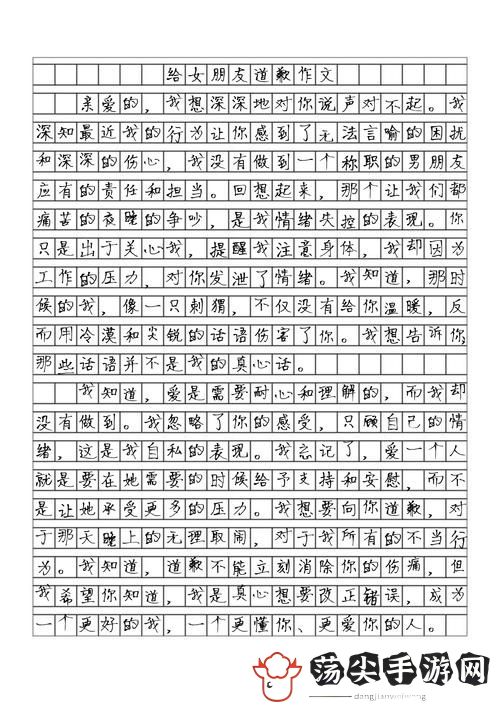 给女朋友道歉作文
亲爱的，我想深深地对你说声对不起。我
深知最近我的行为让你感到了无法言喻的困扰
和深深的伤心，我没有做到一个称职的男朋友
应有的责任和担当。回想起来，那个让我们都
痛苦的夜晚的争吵，是我情绪失控的表现。你
只是出于关心我，提醒我注意身体，我却因为
工作的压力，对你发泄了情绪。我知道，那时
候的我，像一只刺猬，不仅没有给你温暖，反
而用冷漠和尖锐的话语伤害了你。我想告诉你，
那些话语并不是我的真心话。
我知道，爱是需要耐心和理解的，而我却
没有做到。我忽略了你的感受，只顾自己的情
绪，这是我自私的表现。我忘记了，爱一个人
就是要在她需要的时候给予支持和安慰，而不
是让她承受更多的压力。我想要向你道歉，对
于那天晚上的无理取闹，对于我所有的不当行
为。我知道，道歉不能立刻消除你的伤痛，但
我希望你知道，我是真心想要改正错误，成为
一个更好的我，一个更懂你、更爱你的人。
荡尖手游网
dangjianweiwang